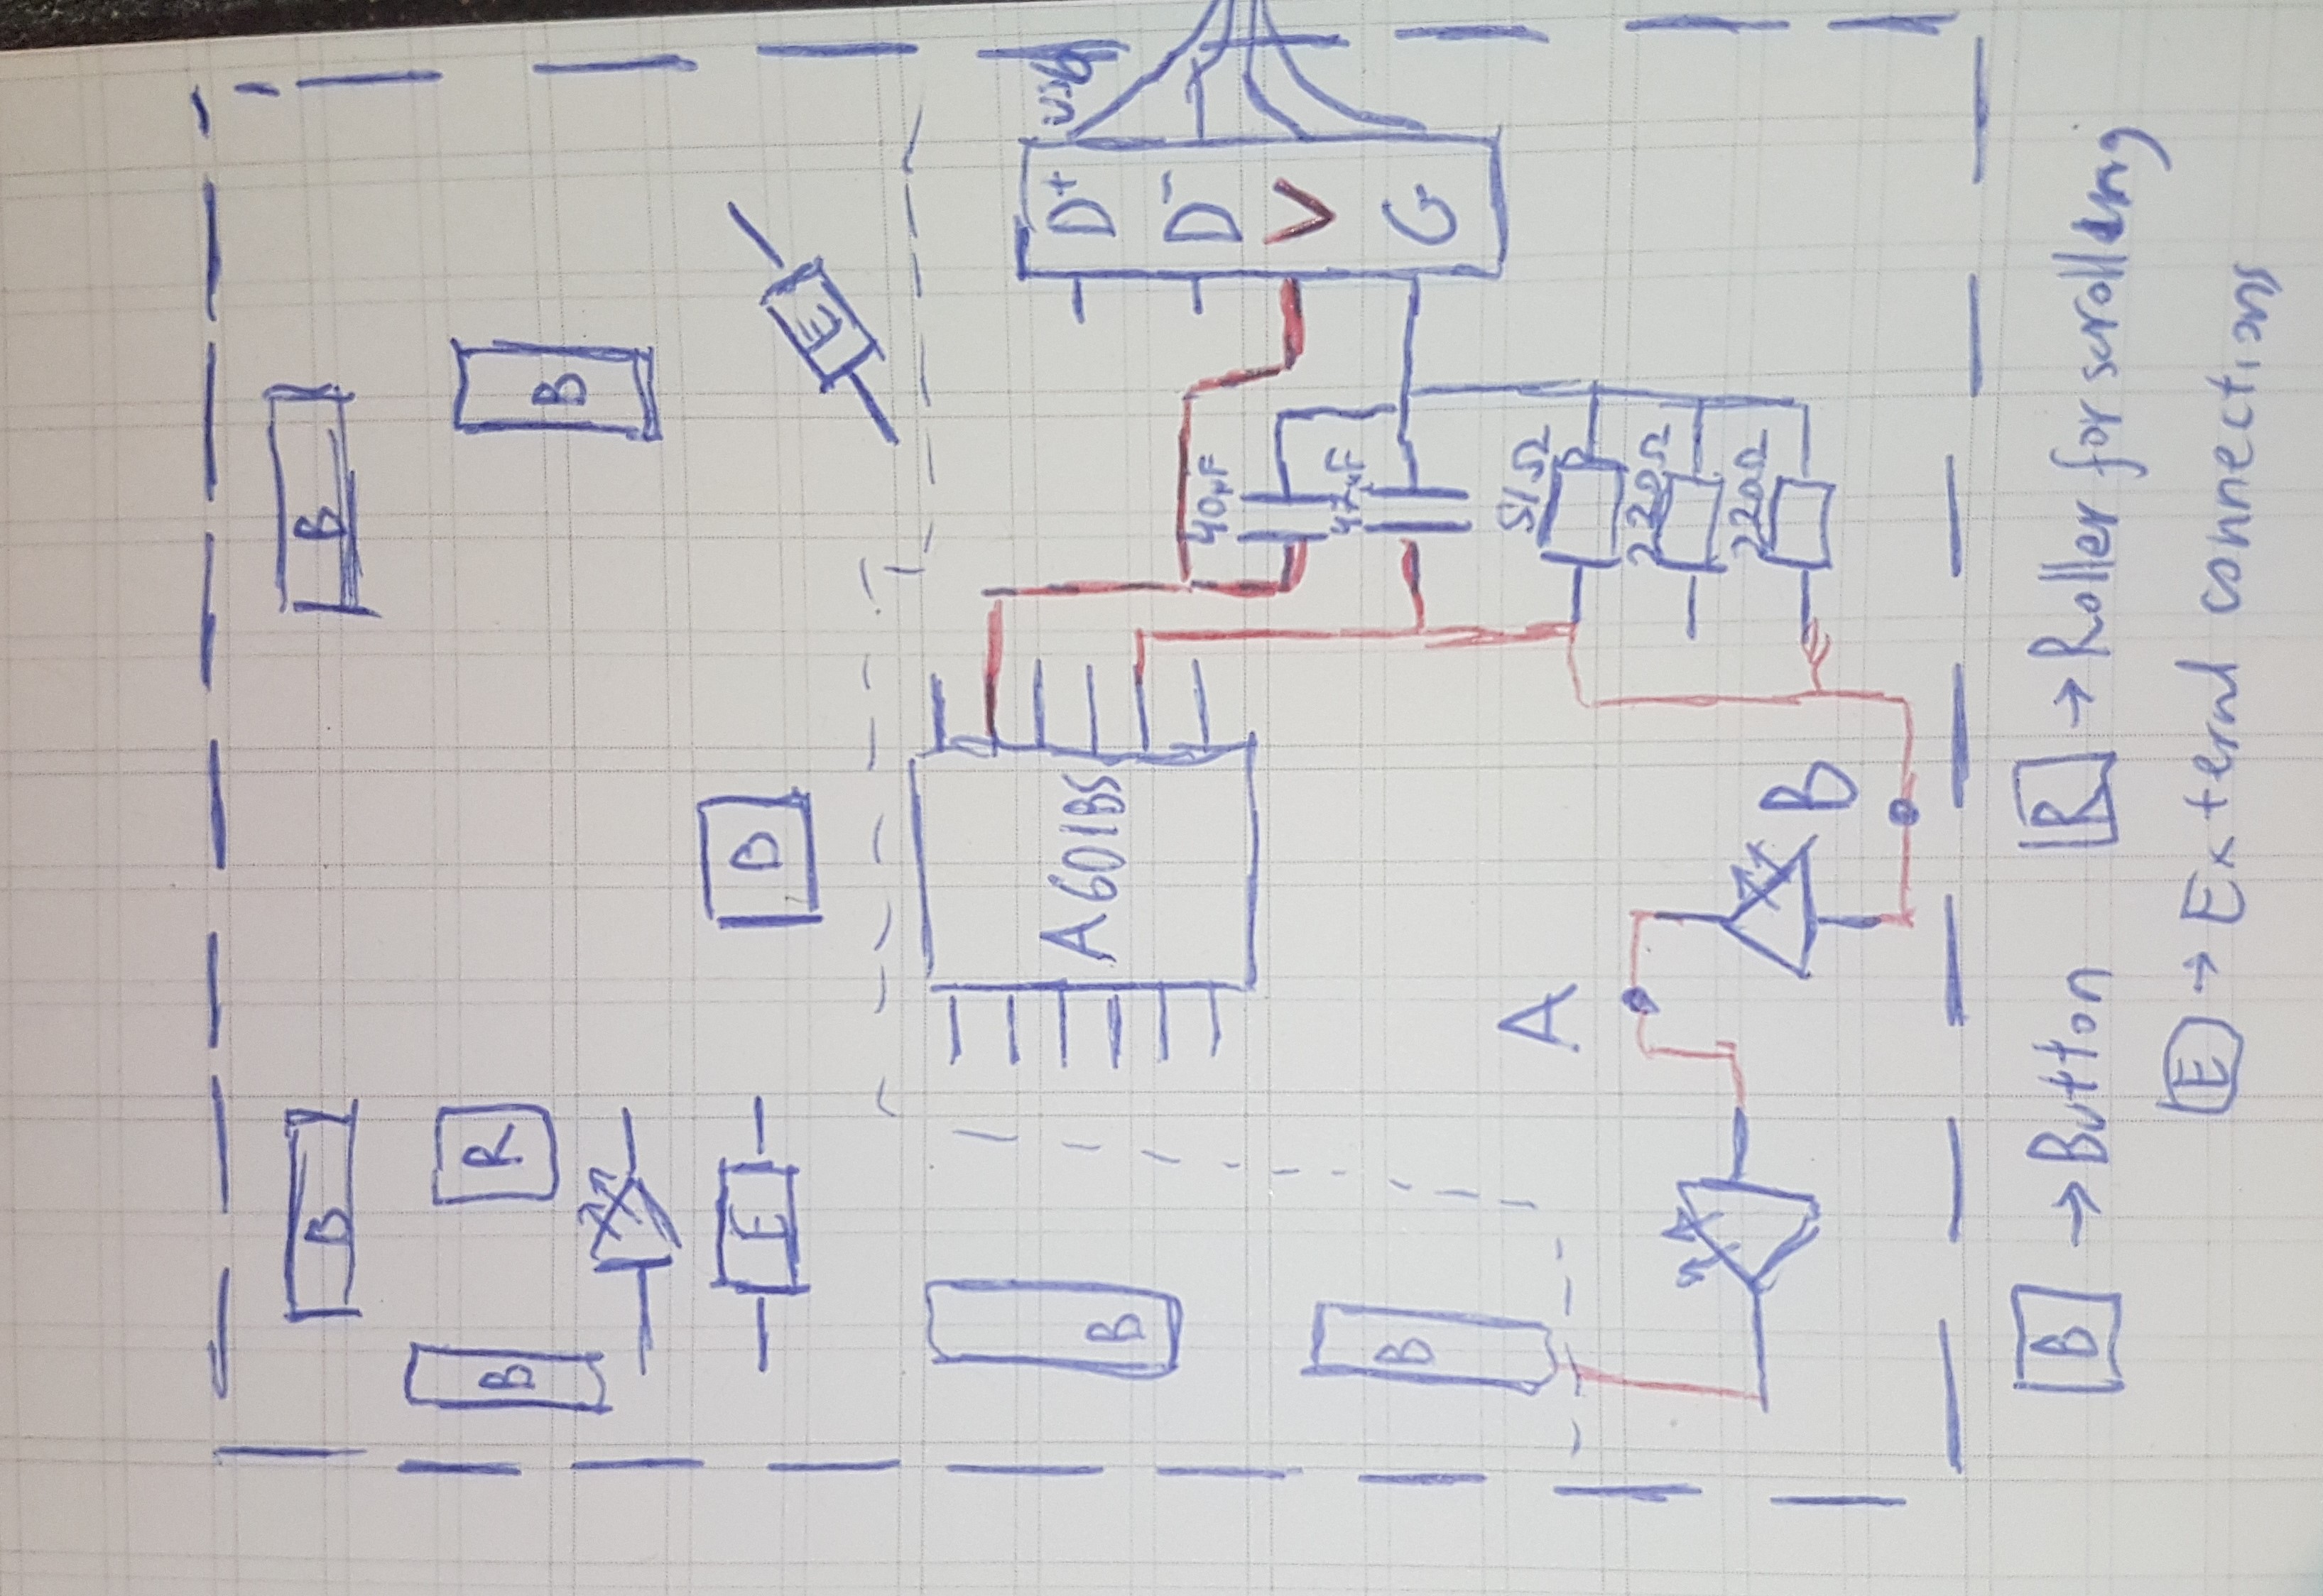 B
B
B
R
B
E
B
E
A601BS
B
D+
USB
D-
40µF
V
47µF
G
B
51Ω
A
220Ω
220Ω
B
B → Button R → Roller for scrolling
E → External connections